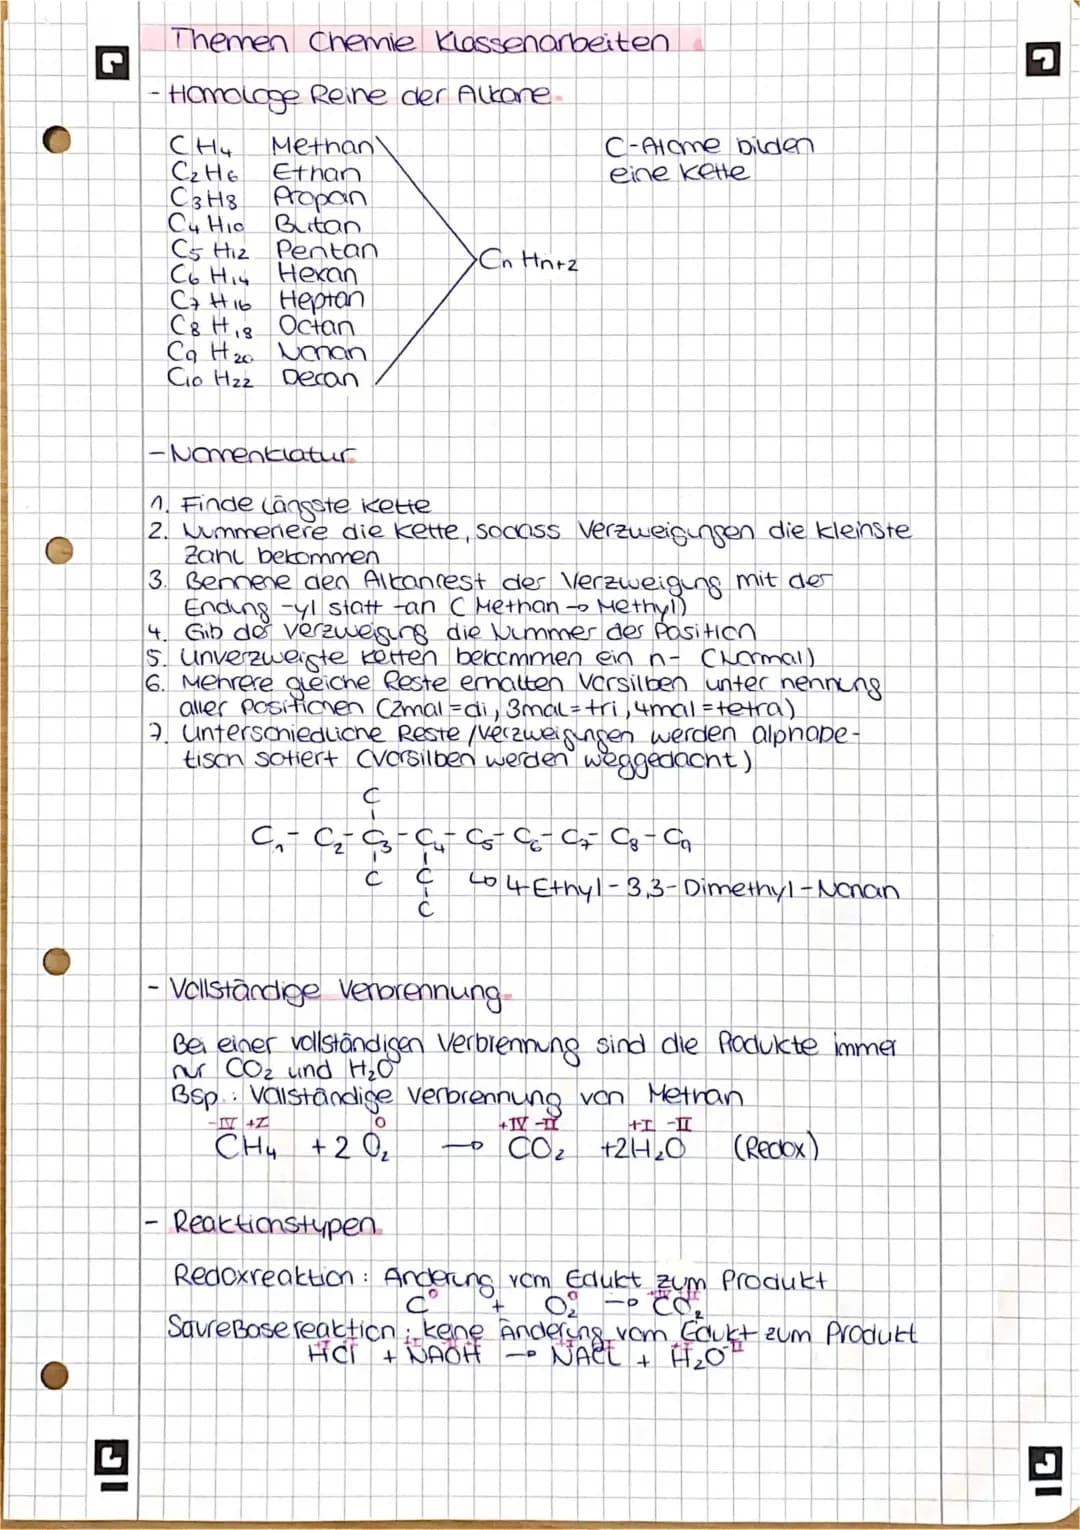 Themen Chemie Klassenarbeiten
- Homologe Reine der Alkane
CH₄ Methan
C₂H₆ Ethan
C₃H₈ Propan
C₄H₁₀ Butan
C₅H₁₂ Pentan
C₆H₁₄ Hexan
C₇H₁₆ Heptan
C₈H₁₈ Octan
C₉H₂₀ Nonan
C₁₀H₂₂ Decan
CnHn+2
C-Atome bilden
eine Kette
- Nomenklatur
1. Finde längste Kette
2. Nummeriere die Kette, sodass Verzweigungen die kleinste
Zahl bekommen
3. Bennene den Alkanrest der Verzweigung mit der
Endung -yl statt -an (Methan → Methyl)
4. Gib der Verzweigung die Nummer des Position
5. Unverzweigte Ketten bekommen ein n- (Normal)
6. Mehrere gleiche Reste erhalten Vorsilben unter nennung
aller Positionen (2mal=di, 3mal=tri, 4mal=tetra)
7. Unterschiedliche Reste/Verzweigungen werden alphabe-
tisch sotiert (Vorsilben werden weggedacht)
C
C₁-C₂-C₃-C₄-C₅-C₆-C₇-C₈-C₉
C C ↳ 4-Ethyl-3,3-Dimethyl-Nonan
C
- Vollständige Verbrennung
Bei einer vollständigen Verbrennung sind die Produkte immer
nur CO₂ und H₂O
Bsp.: Vollständige Verbrennung von Methan
-IV +I 0 +IV -II +I -II
CH₄ + 2 O₂ → CO₂ +2H₂O (Redox)
- Reaktionstypen
Redoxreaktion: Änderung vom Edukt zum Produkt
C⁰ + O₂⁰ → CO₂
SäureBasereaktion: keine Änderung vom Edukt zum Produkt
HCl + NAOH → NACL + H₂O